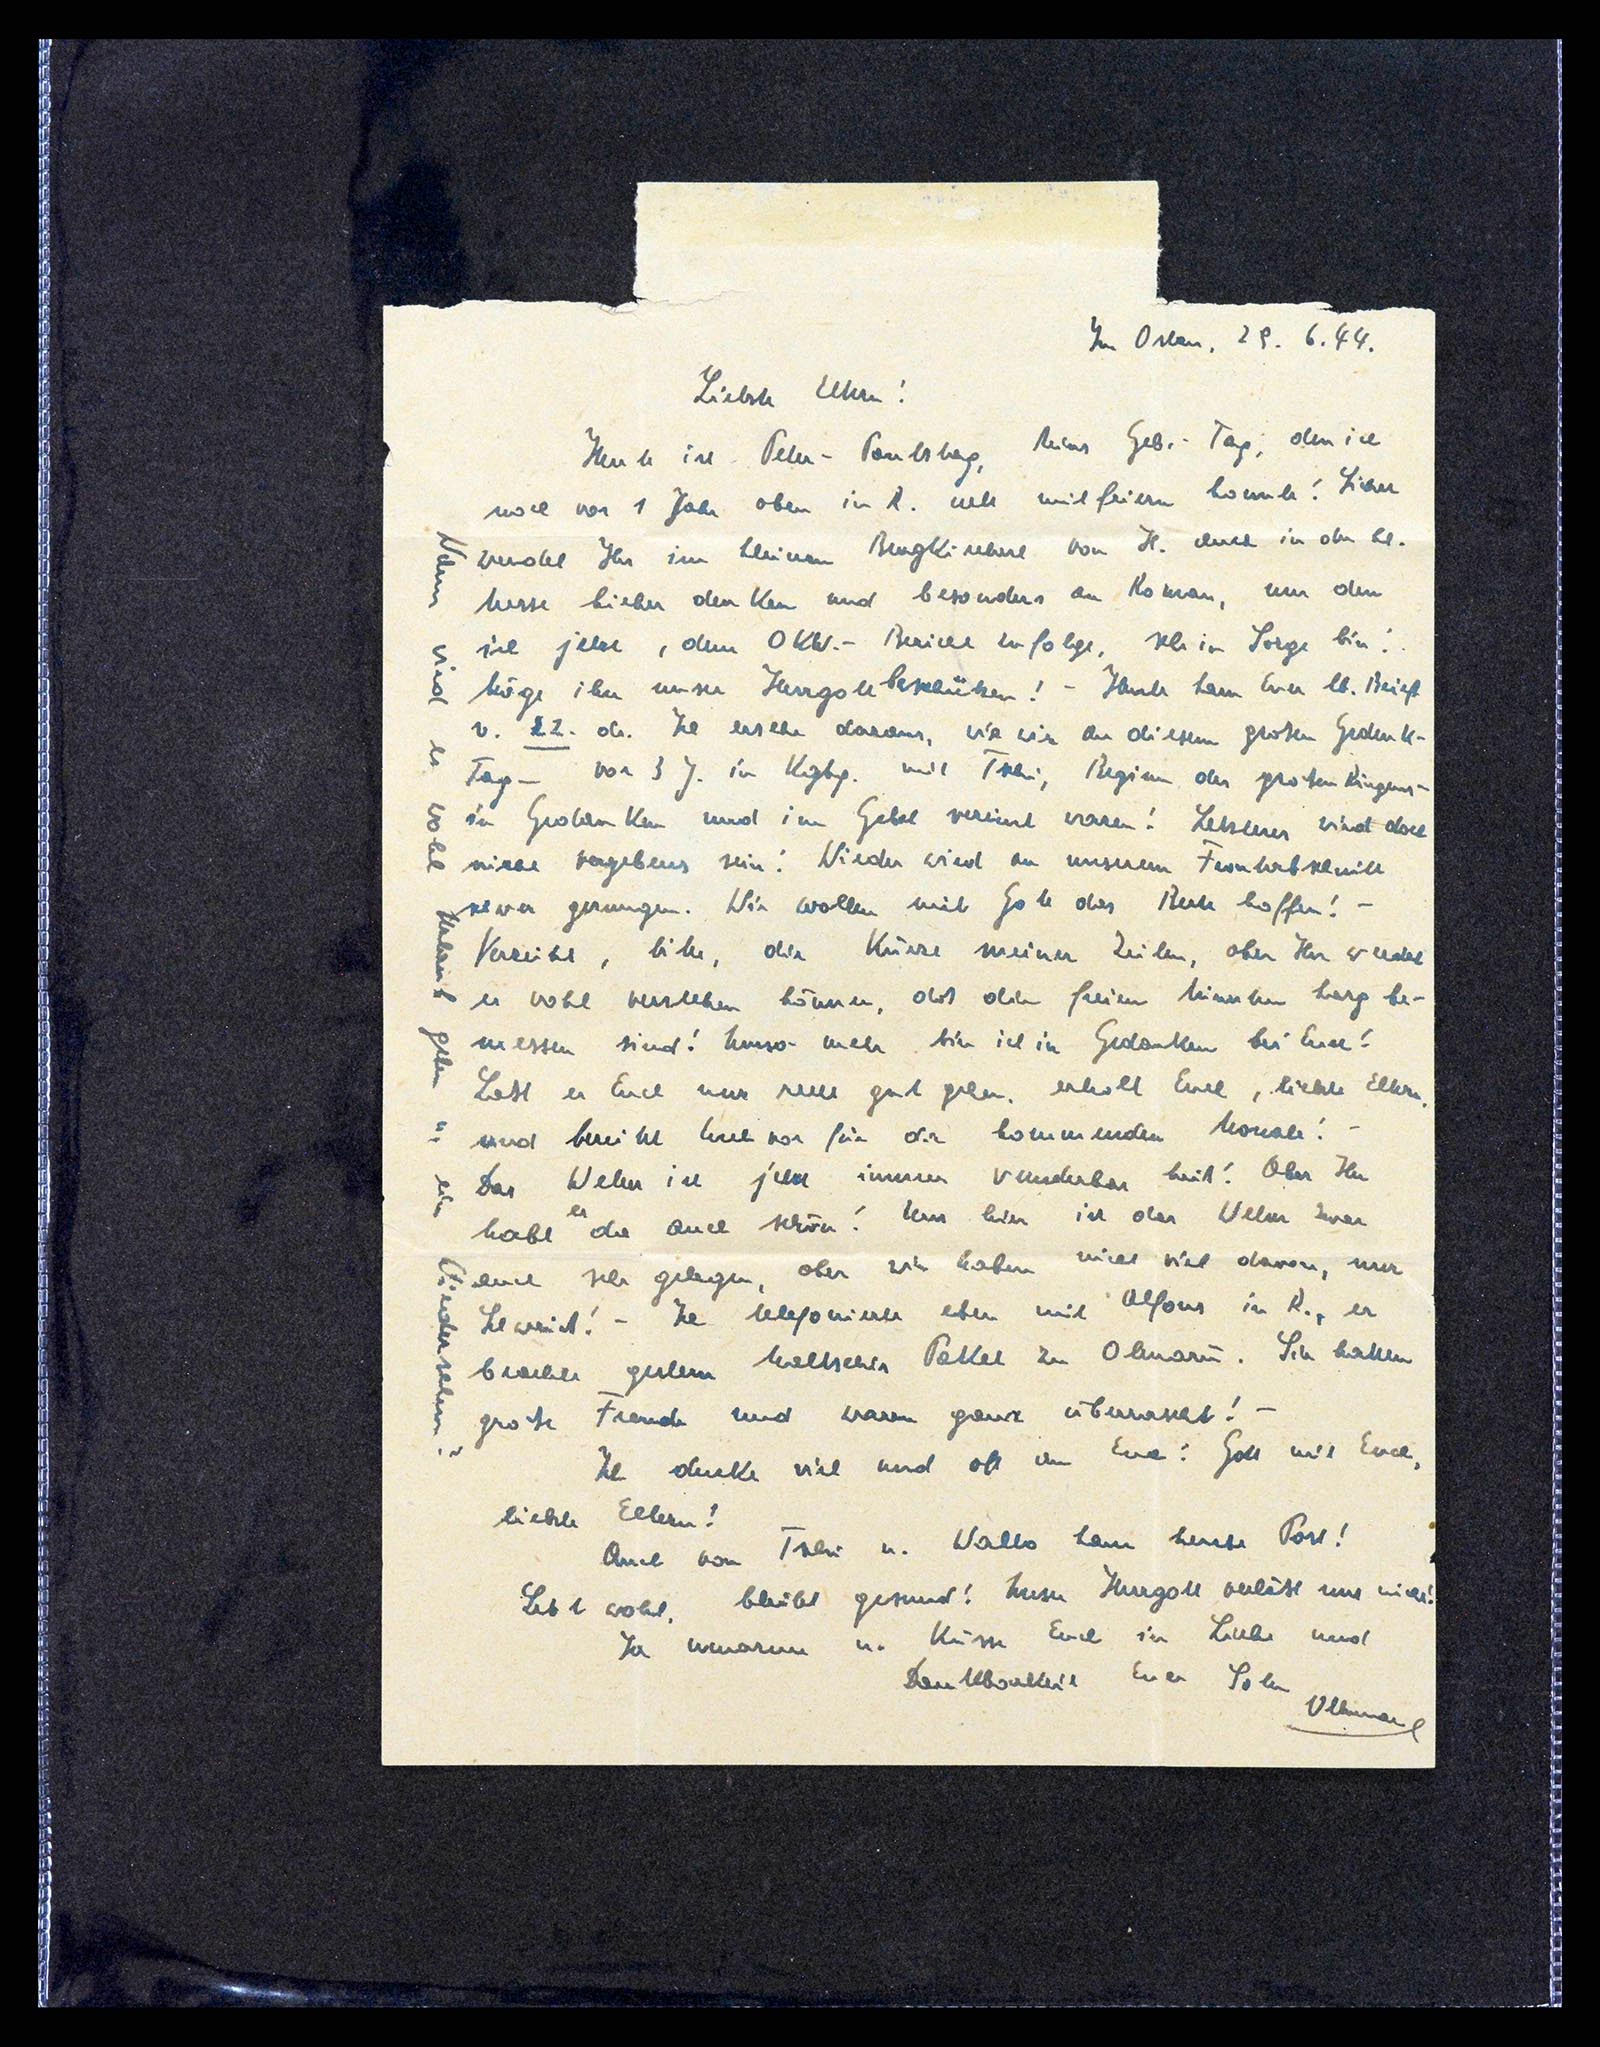 Im Osten, 29. 6. 44.
Liebste Eltern!
Heute ist Peter-Paulstag, Geb.-Tag, den ich
noch vor 1 Jahr oben in R. mitfeiern konnte! Sicher
werdet Ihr im kleinen Bergkircherl von H. auch in der hl.
Messe lieber denken und besonders an Roman, um den
ich jetzt, dem OKW.-Bericht zufolge, sehr in Sorge bin!
Möge ihn unser Herrgott beschützen! – Heute kam Euer lb. Brief
v. 22. da. Ich ersehe daraus, wie wir an diesem großen Gedenk-
Tag – vor 3 J. in mit Tschi, Beginn des großen Ringens –
in Gedanken und im Gebet vereint waren! Letzteres wird doch
nicht vergebens sein! Wieder wird an unserem Frontabschnitt
schwer gerungen. Wir wollen mit Gott das Beste hoffen! –
Verzeiht, bitte, die Kürze meiner Zeilen, aber Ihr werdet
es wohl verstehen können, daß die freien Minuten karg be-
messen sind! Umso mehr bin ich in Gedanken bei Euch!
Laßt es Euch nur recht gut gehen, erholt Euch, liebste Eltern,
und bereitet Euch vor für die kommenden Monate! –
Das Wetter ist jetzt immer wunderbar Aber Ihr
habt es da auch schön! Uns hier ist das Wetter zwar
auch sehr gelegen, aber wir haben nicht viel davon, nur
Schweiß! – Ich telefonierte eben mit Alfons in R., er
brachte gestern Paket zu Sie hatten
große Freude und waren ganz überrascht! –
Ich denke viel und oft an Euch! Gott mit Euch,
liebste Eltern!
Auch von Tschi u. Waldo kam heute Post!
Lebt wohl, bleibt gesund! Unser Herrgott verläßt uns nicht!
Ich umarme u. küsse Euch in Liebe und
Dankbarkeit Euer Sohn
Volkmar
Wann wird es wohl Urlaub geben u. ein Wiedersehen?